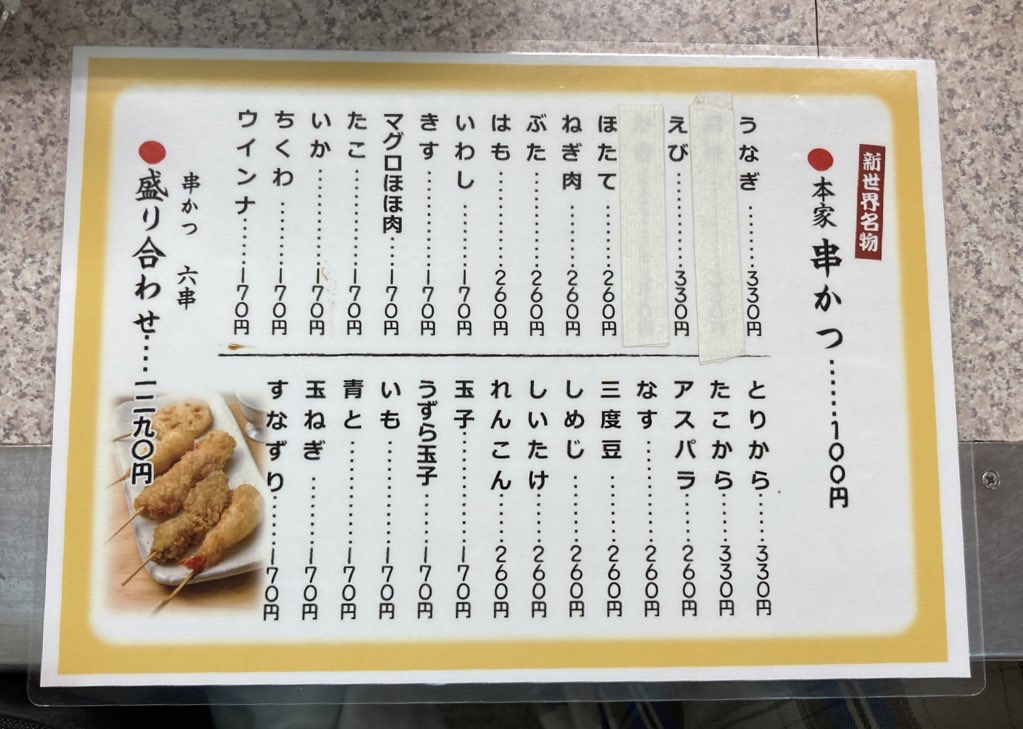 新世界名物
本家 串かつ……100円
うなぎ……330円
えび……330円
ほたて……260円
ねぎ肉……260円
ぶた……260円
はも……260円
いわし……170円
きす……170円
マグロほほ肉……170円
たこ……170円
いか……170円
ちくわ……170円
ウインナ……170円
とりから……330円
たこから……330円
アスパラ……260円
なす……260円
三度豆……260円
しめじ……260円
しいたけ……260円
れんこん……260円
玉子……170円
うずら玉子……170円
いも……170円
青と……170円
玉ねぎ……170円
すなずり……170円
串かつ 六串
盛り合わせ……一二九〇円